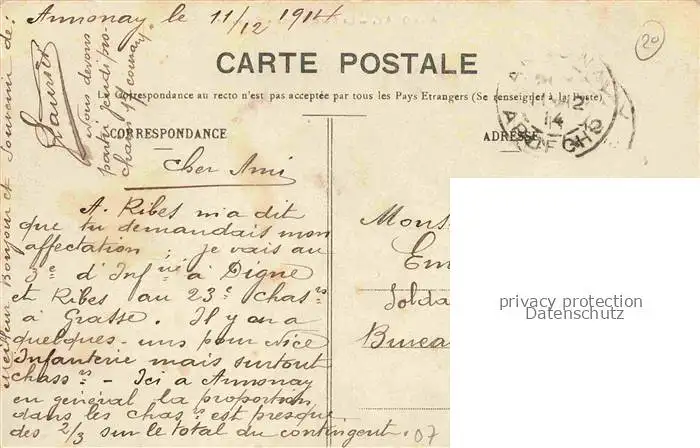 Annonay, le 11/12 1914
20
CARTE POSTALE
La Correspondance au recto n'est pas acceptée par tous les Pays Etrangers (Se renseigner à la Poste)
CORRESPONDANCE
ADRESSE
12
14
ARDECHE
Cher Ami
A. Ribes m'a dit
que tu demandais mon
affectation ; je vais au
3e d'Infrie à Digne
et Ribes au 23e chasrs
à Grasse. Il y en a
quelques-uns pour Nice
Infanterie mais surtout
chassrs - Ici à Annonay
en général la proportion
dans les chasrs est presque
des 2/3 sur le total du contingent.
Nous devons
partir jeudi pro-
chain
Meilleur Bonjour et Souvenir de:
Soldat
Burea
07
privacy protection
Datenschutz